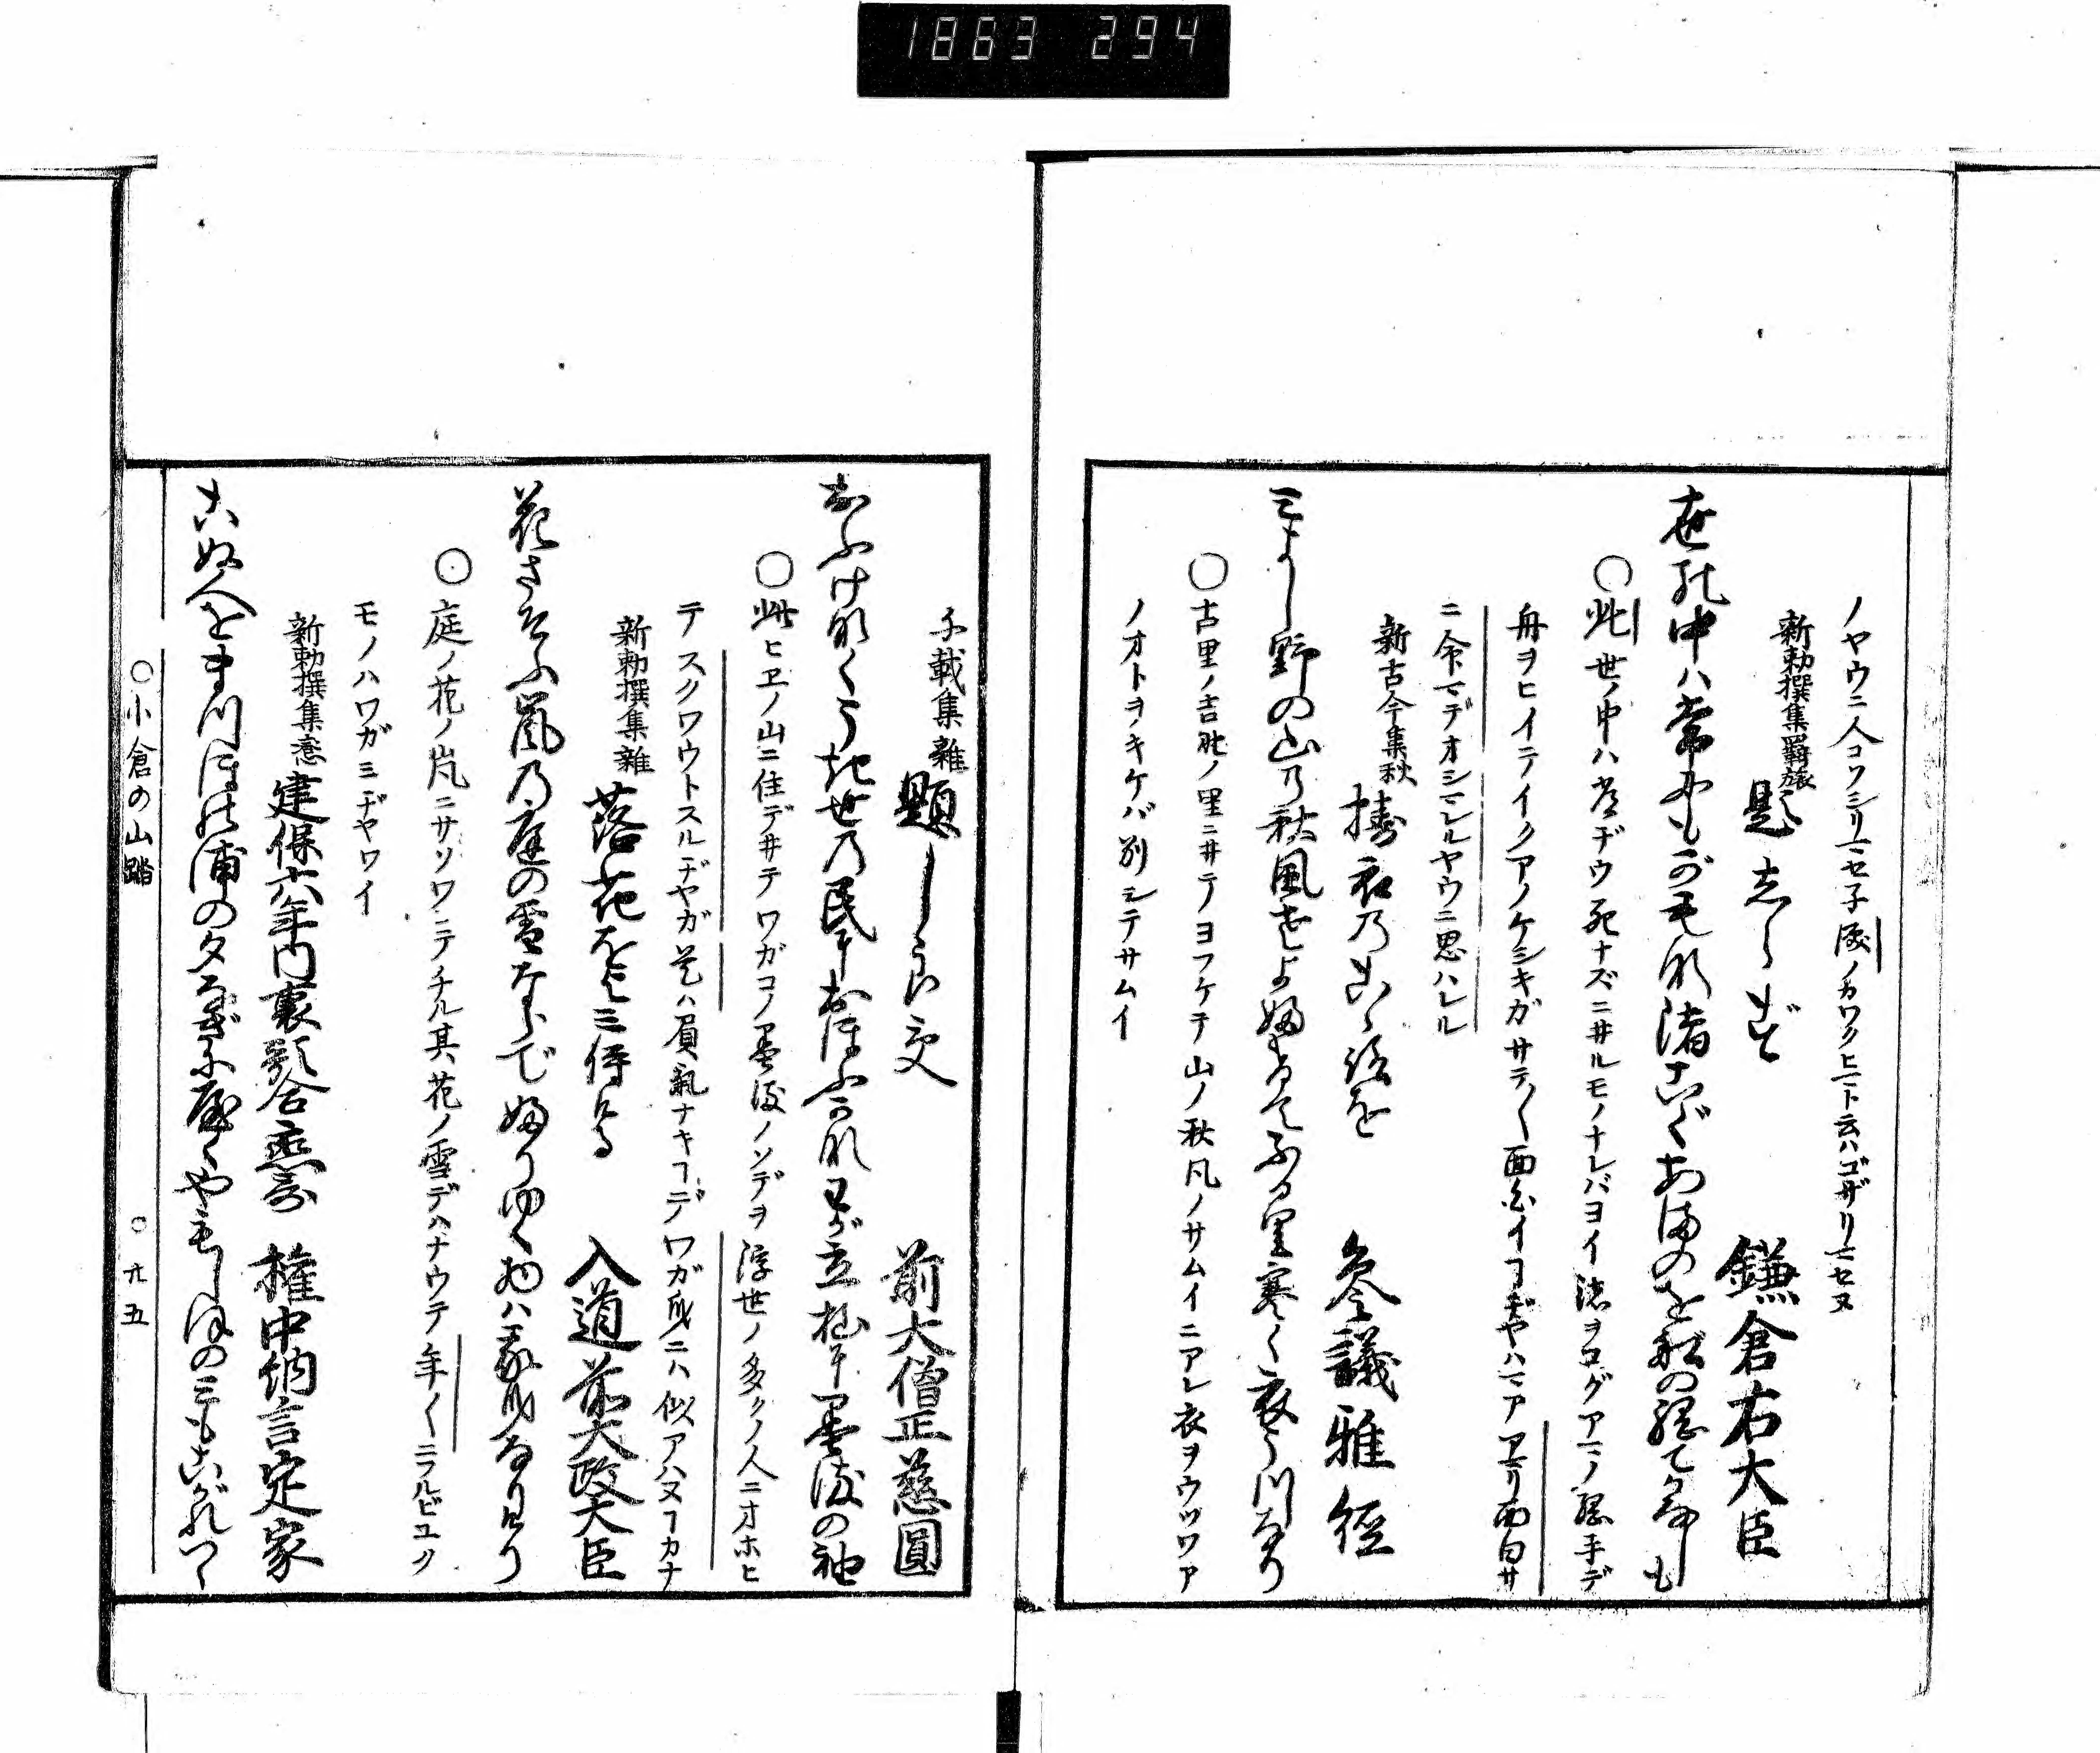 1863 294
ノヤウニ人コソシリマセ子 濱ノカワクヒマト云ハゴザリマセヌ
新勅撰集羇旅 題志らず 鎌倉右大臣
世の中ハ常にもがもな渚こぐあまのを舩の綱てかなしも
○此世ノ中ハ常ヂウ死ナズニ井ルモノナレバヨイ 渚ヲコグアマノ 綱手デ
舟ヲヒイテイクアノケシキガサテ〱面白イヿヂヤハマア アマリ面白サ
ニ命マデオシマレルヤウニ思ハレル
新古今集秋 擣衣乃こゝろを 参議雅経
三よし野の山乃秋風さよ婦けてふる里寒く衣うつなり
○古里ノ吉野ノ里ニ井テヨフケテ山ノ秋風ノサムイニアレ衣ヲウツワア
ノオトヲキケバ別シテサムイ
千載集雑 題しらず 前大僧正慈圓
おふけなくうき世乃民におほふかなわが立杣に墨染の袖
○此ヒヱノ山ニ住デ井テワガコノ墨染ノソデヲ 浮世ノ多クノ人ニオホヒ
テスクワウトスルヂヤガ 是ハ負氣ナキヿデワガ身ニハ似アハヌヿカナ
新勅撰集雑 落花をよミ侍ける 入道前大政大臣
花さそふ嵐乃庭の雪ならで婦りゆく物ハ我身なりけり
○庭ノ花ノ嵐ニサソワレテチル其花ノ雪デハナウテ 年〱ニフルビユク
モノハワガミヂヤワイ
新勅撰集恋 建保六年内裏歌合恋哥 権中納言定家
こぬ人をまつほの浦の夕なぎに屋くやもしほの三もこがれつゝ
○小倉の山踏 ○九五